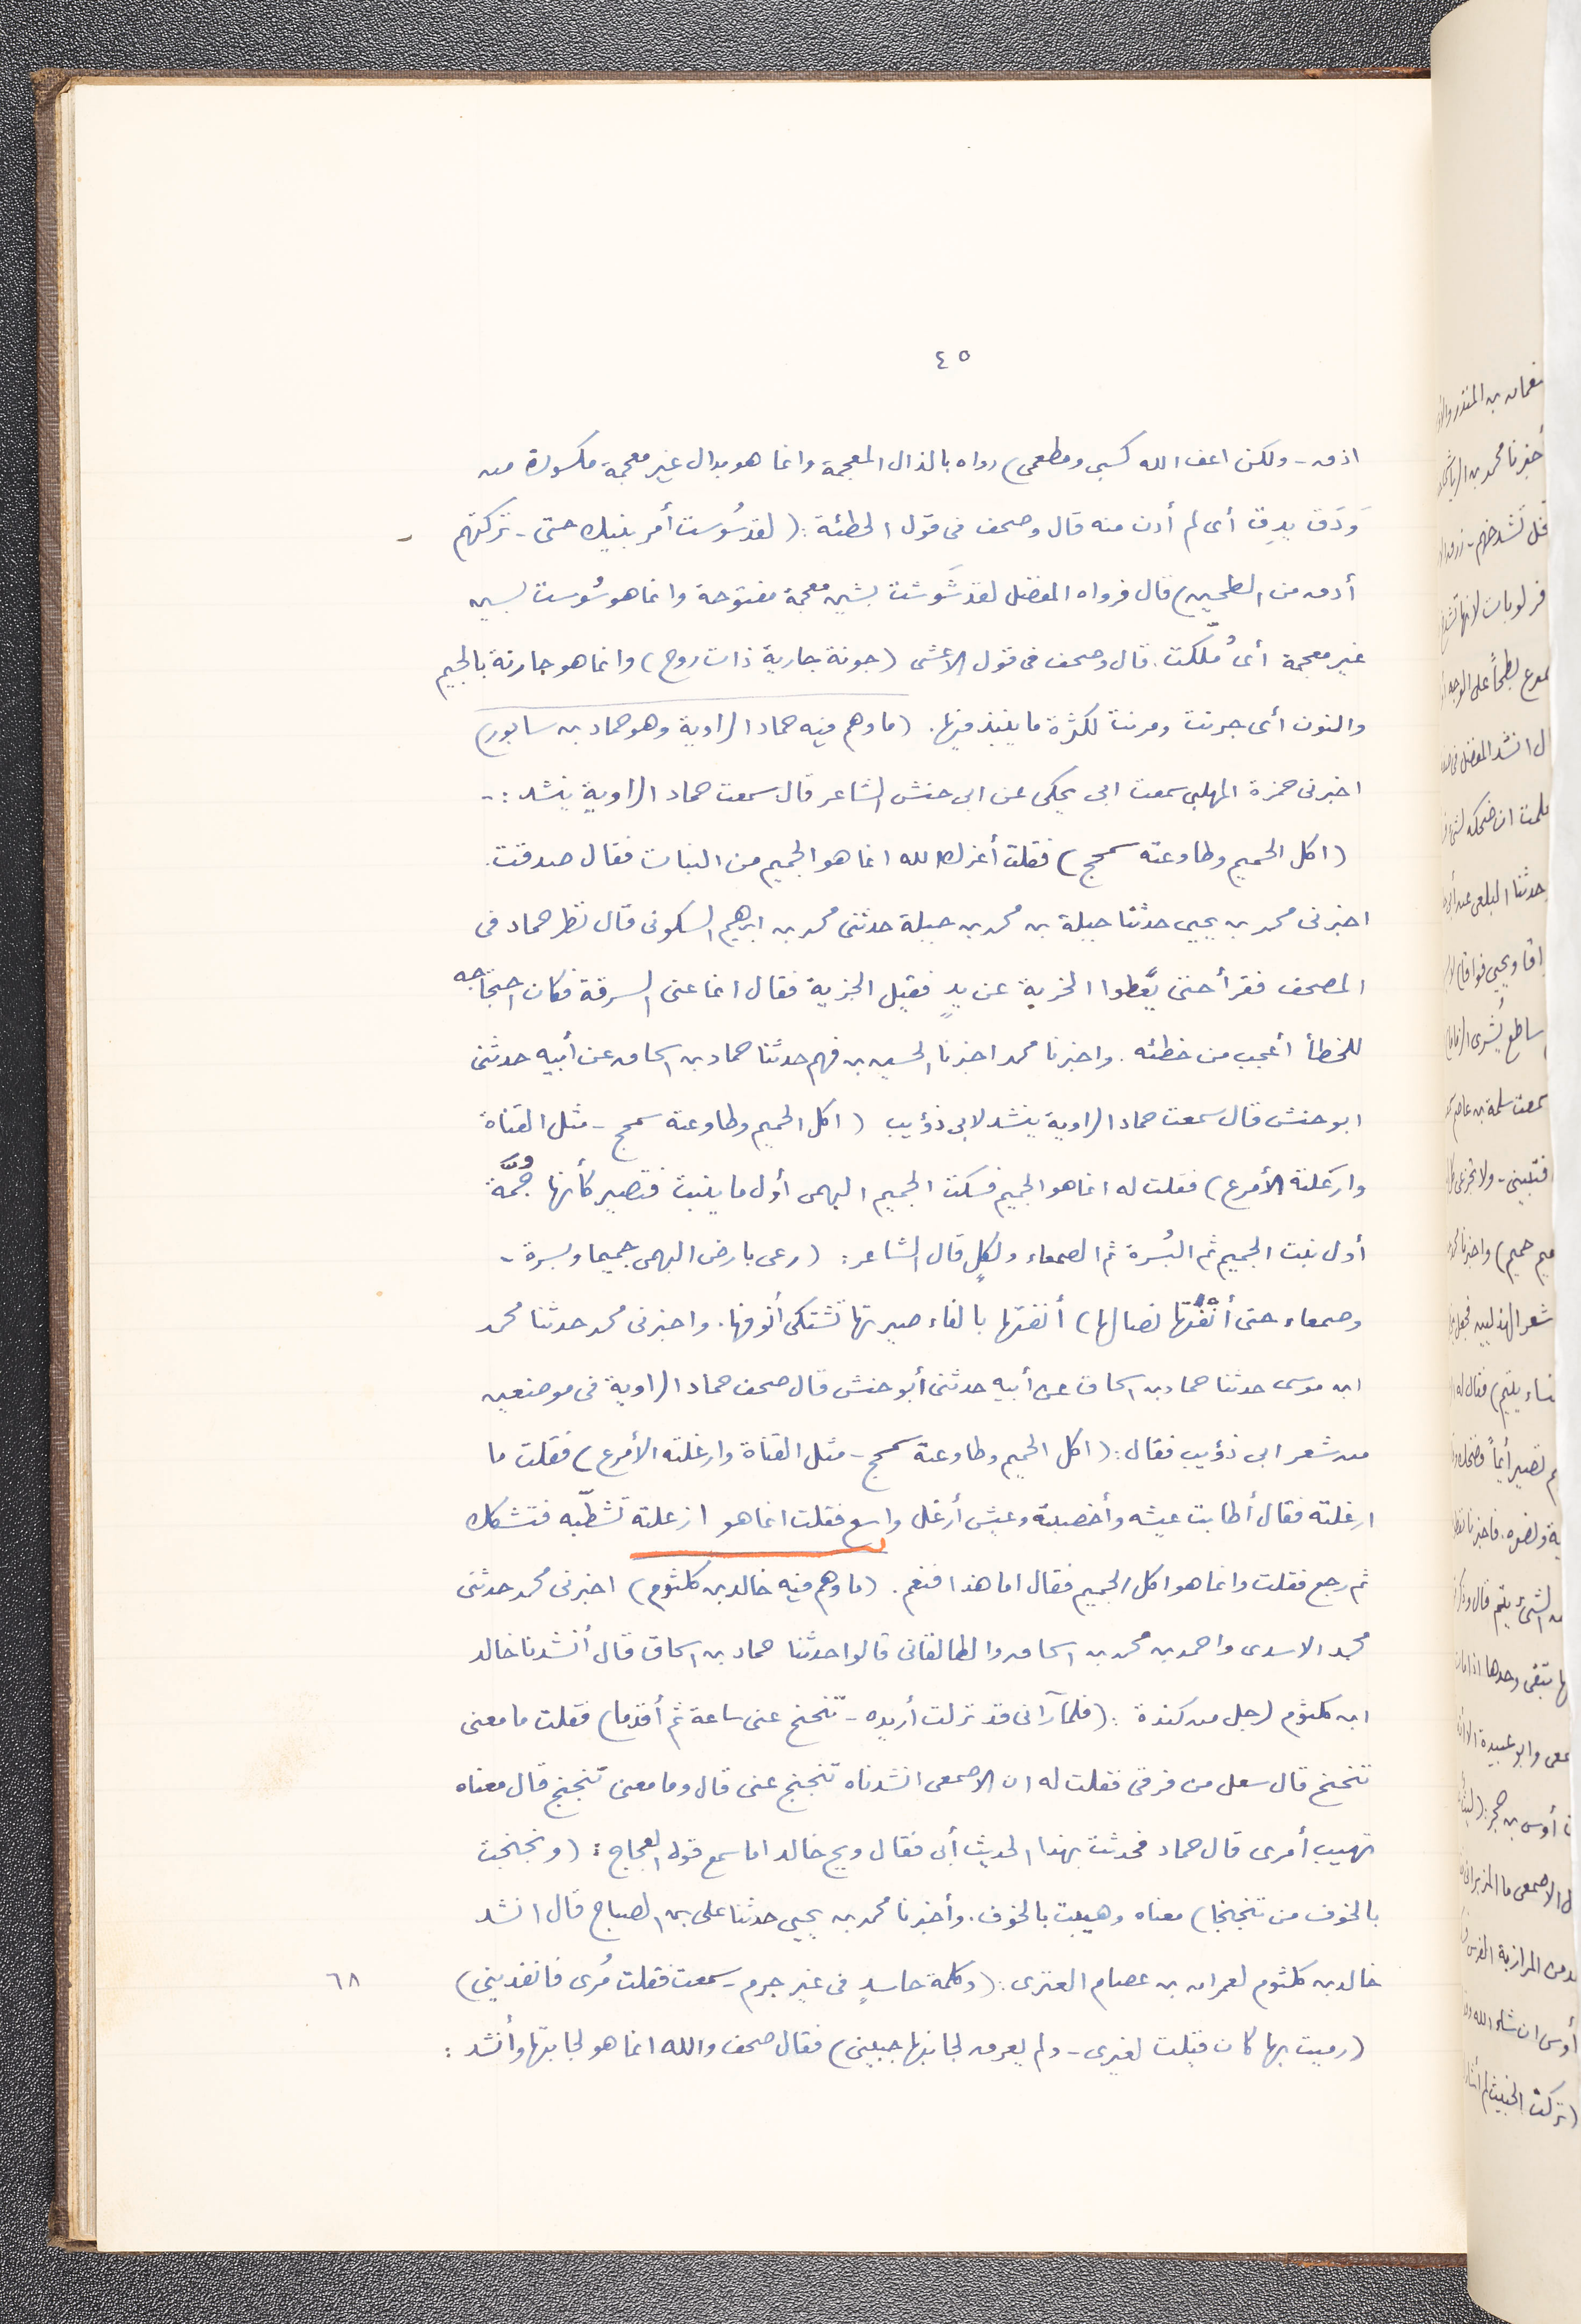 ٤٥
اذمه - ولكن اعف الله كسبى ومطعمى) رواه بالذال المعجمة وانما هو بدال غير معجمة مكسورة من
وَدَق يدِق أى لم أدن منه قال وصحف فى قول الحطئة: (لقد سُوست أمر بنيك حتى - تركتهم
أدق من الطحين) قال فرواه المفضل لقد شَوشت بشين معجمة مفتوحة وانما هو سُوست بسين
غير معجمة أى مُلّكت. قال وصحف فى قول الاعشى (جونة جارية ذات روح) وانما هو جارنة بالجيم
والنون أى جرنت ومرنت لكثرة ما ينبذ فيها. (ما وهم فيه حماد الراوية وهو حماد بن سابور)
اخبرنى حمزة المهلبى سمعت ابى يحكى عن ابى حنش الشاعر قال سمعت حماد الراوية ينشد :-
(اكل الحميم وطاوعته سمحج) فقلت أعزك الله انما هو الجميم من النبات فقال صدقت.
اخبرنى محمد بن يحيى حدثنا جبلة بن محمد بن جبلة حدثنى محمد بن ابرهيم السكونى قال نظر حماد فى
المصحف فقرأ حتى يُعطوا الخربة عن يدٍ فقيل الجزية فقال انما عنى السرقة فكان احتجاجه
للخطأ أعجب من خطئه. واخبرنا محمد اخبرنا الحسين بن فهم حدثنا حماد بن اسحاق عن أبيه حدثنى
ابو حنش قال سمعت حماد الراوية ينشد لابى ذؤيب (اكل الحميم وطاوعته سمحج - مثل القناة
وارغلته الأمرع) فقلت له انما هو الجميم فسكت الجميم البهمى أول ما ينبت فتصير كأنها جُمّة
أول نبت الجميم ثم البُسرة ثم الصمعاء ولكلٍ قال الشاعر: (رعى بارض البهمى جميما وبسرة -
وصمعاء حتى أنَفَتها نصالها) أنفتها بالفاء صيرتها تشتكى أنوفها. واخبرنى محمد حدثنا محمد
ابن موسى حدثنا حماد بن اسحاق عن أبيه حدثنى أبو حنش قال صحف حماد الراوية فى موضعين
من شعر ابى ذؤيب فقال: (اكل الحميم وطاوعته سمحج - مثل القناة وارغلته الأمرع) فقلت ما
ارغلته فقال أطابت عيشه وأخصبته وعيش أرغل واسع فقلت انما هو ازعلته نشطّته فتشكك
ثم رجع فقلت وانما هو اكل الجميم فقال اما هذا فنعم. (ما وهم فيه خالد بن كلثوم) اخبرنى محمد حدثنى
محمد الاسدى واحمد بن محمد بن اسحاق والطالقانى قالوا حدثنا حماد بن اسحاق قال أنشدنا خالد
ابن كلثوم لرجل من كندة: (فلما رآنى قد نزلت أريده - تنحنح عنى ساعة ثم أقدما) فقلت ما معنى
تنحنح قال سعل من فرقى فقلت له ان الاصمعى انشدناه تنجنج عنى قال وما معنى تنجنج قال معناه
تهيب أمرى قال حماد فحدثت بهذا الحديث أبى فقال ويح خالد اما سمع قول العجاج: (ونجنجت
بالخوف من تنجنجا) معناه وهيبت بالخوف. وأخبرنا محمد بن يحيى حدثنا على بن الصباح قال انشد
خالد بن كلثوم لعمران بن عصام العنزى: (وكلمة حاسدٍ فى غير جرم - سمعت فقلت مُرى فانفذينى) ٦٨
(رميت بها كان قيلت لغيرى - ولم يعرق لجانبها جبينى) فقال صحف والله انما هو لجابتها وأنشد :